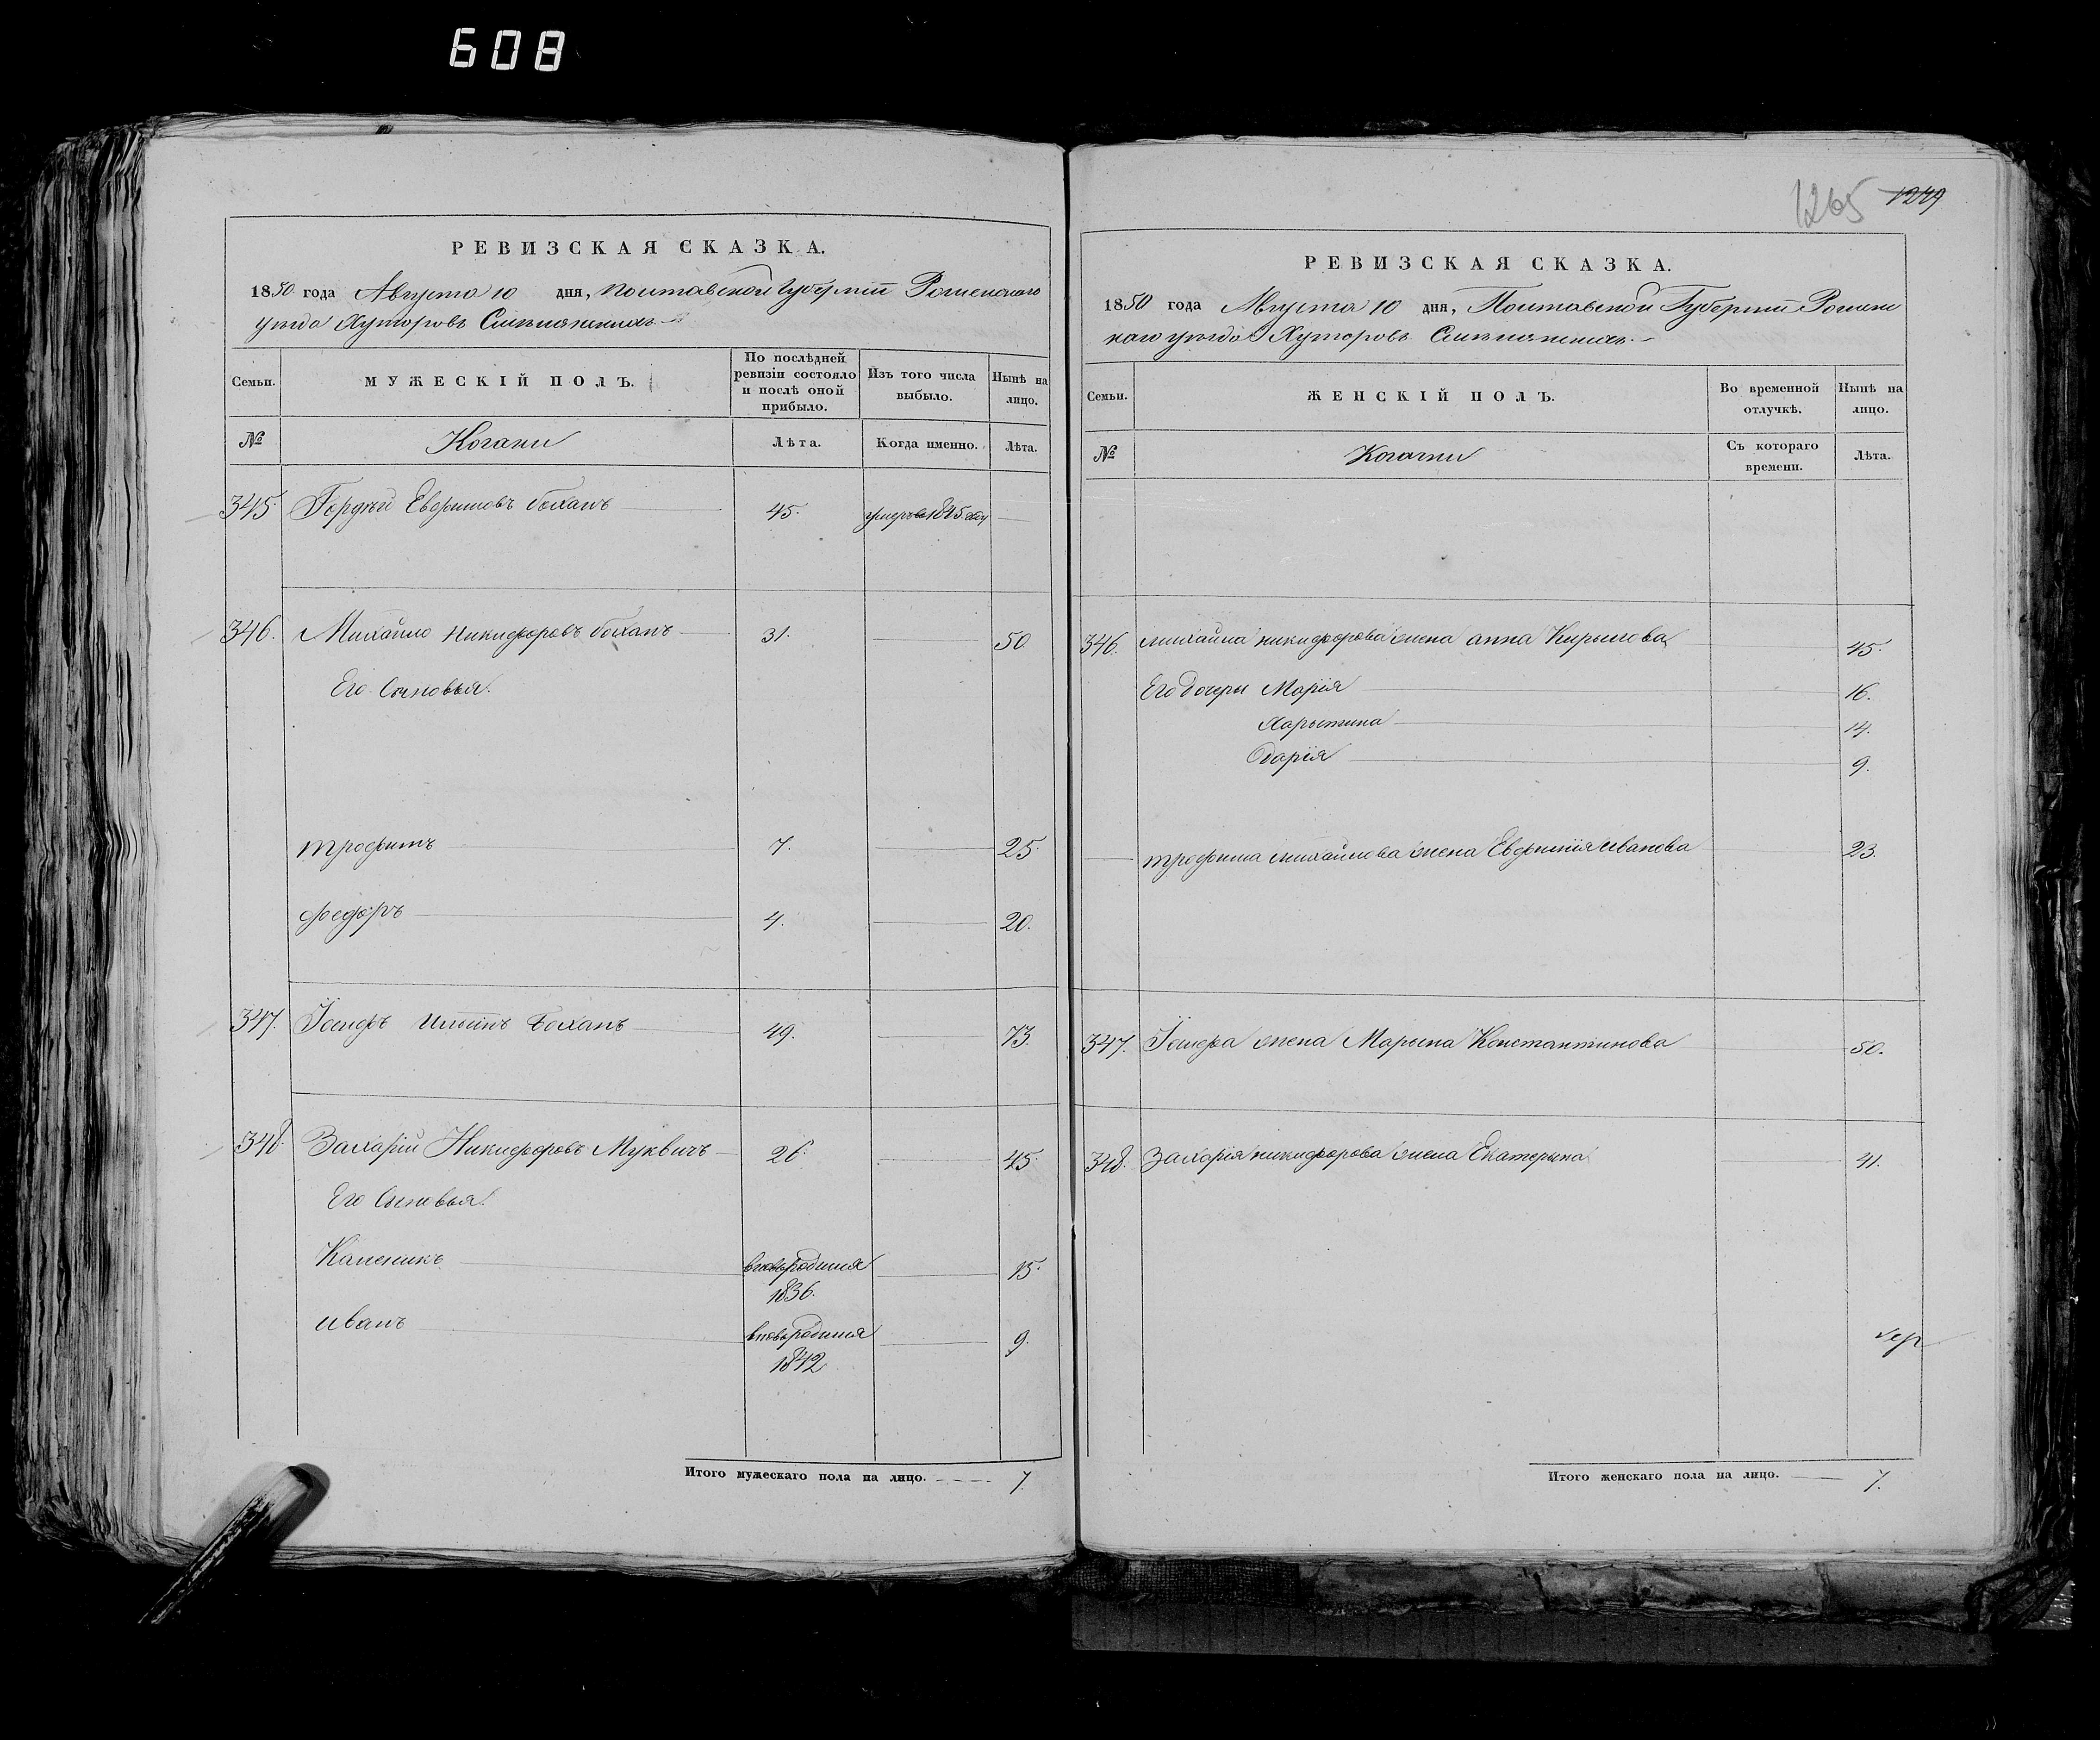 608
РЕВИЗСКАЯ СКАЗКА.
1850 года Августа 10 дня, Полтавской Губерніи Роменского
уезда Хуторовъ
Семьи. МУЖЕСКІЙ ПОЛЪ. По послѣдней ревизіи состояло и послѣ оной прибыло. Изъ того числа выбыло. Нынѣ на лицо.
№ Когани Лѣта. Когда именно. Лѣта.
345. Гордѣй Евфимовъ боханъ 45. умеръ 1845.
346. Михайло Никифоровъ боханъ 31. 50
Его Сыновья.
трофимъ 7. 25.
федоръ 4. 20.
347. Іосифъ Ильинъ Боханъ 49. 73.
348. Захарій Никифоровъ Муквичъ 26. 45.
Его Сыновья.
Каленикъ вновьродился 15.
1836.
иванъ вновьродился 9.
1842
Итого мужескаго пола на лицо. 7.
1265 1249
РЕВИЗСКАЯ СКАЗКА.
1850 года Августа 10 дня, Полтавской Губерніи Роменс
каго уезда Хуторовъ
Семьи. ЖЕНСКІЙ ПОЛЪ. Во временной отлучкѣ. Нынѣ на лицо.
№ Когани Съ котораго времени. Лѣта.
346. михайла никифорова жена анна Кирылова 45.
Его дочери Марія 16.
Харытина 14.
Одарія 9.
трофима михайлова жена Евфимія Иванова 23.
347. Іосифа жена Марына Константинова 50.
348. Захарія никифорова жена Екатерына 41.
Итого женскаго пола на лицо. 7.